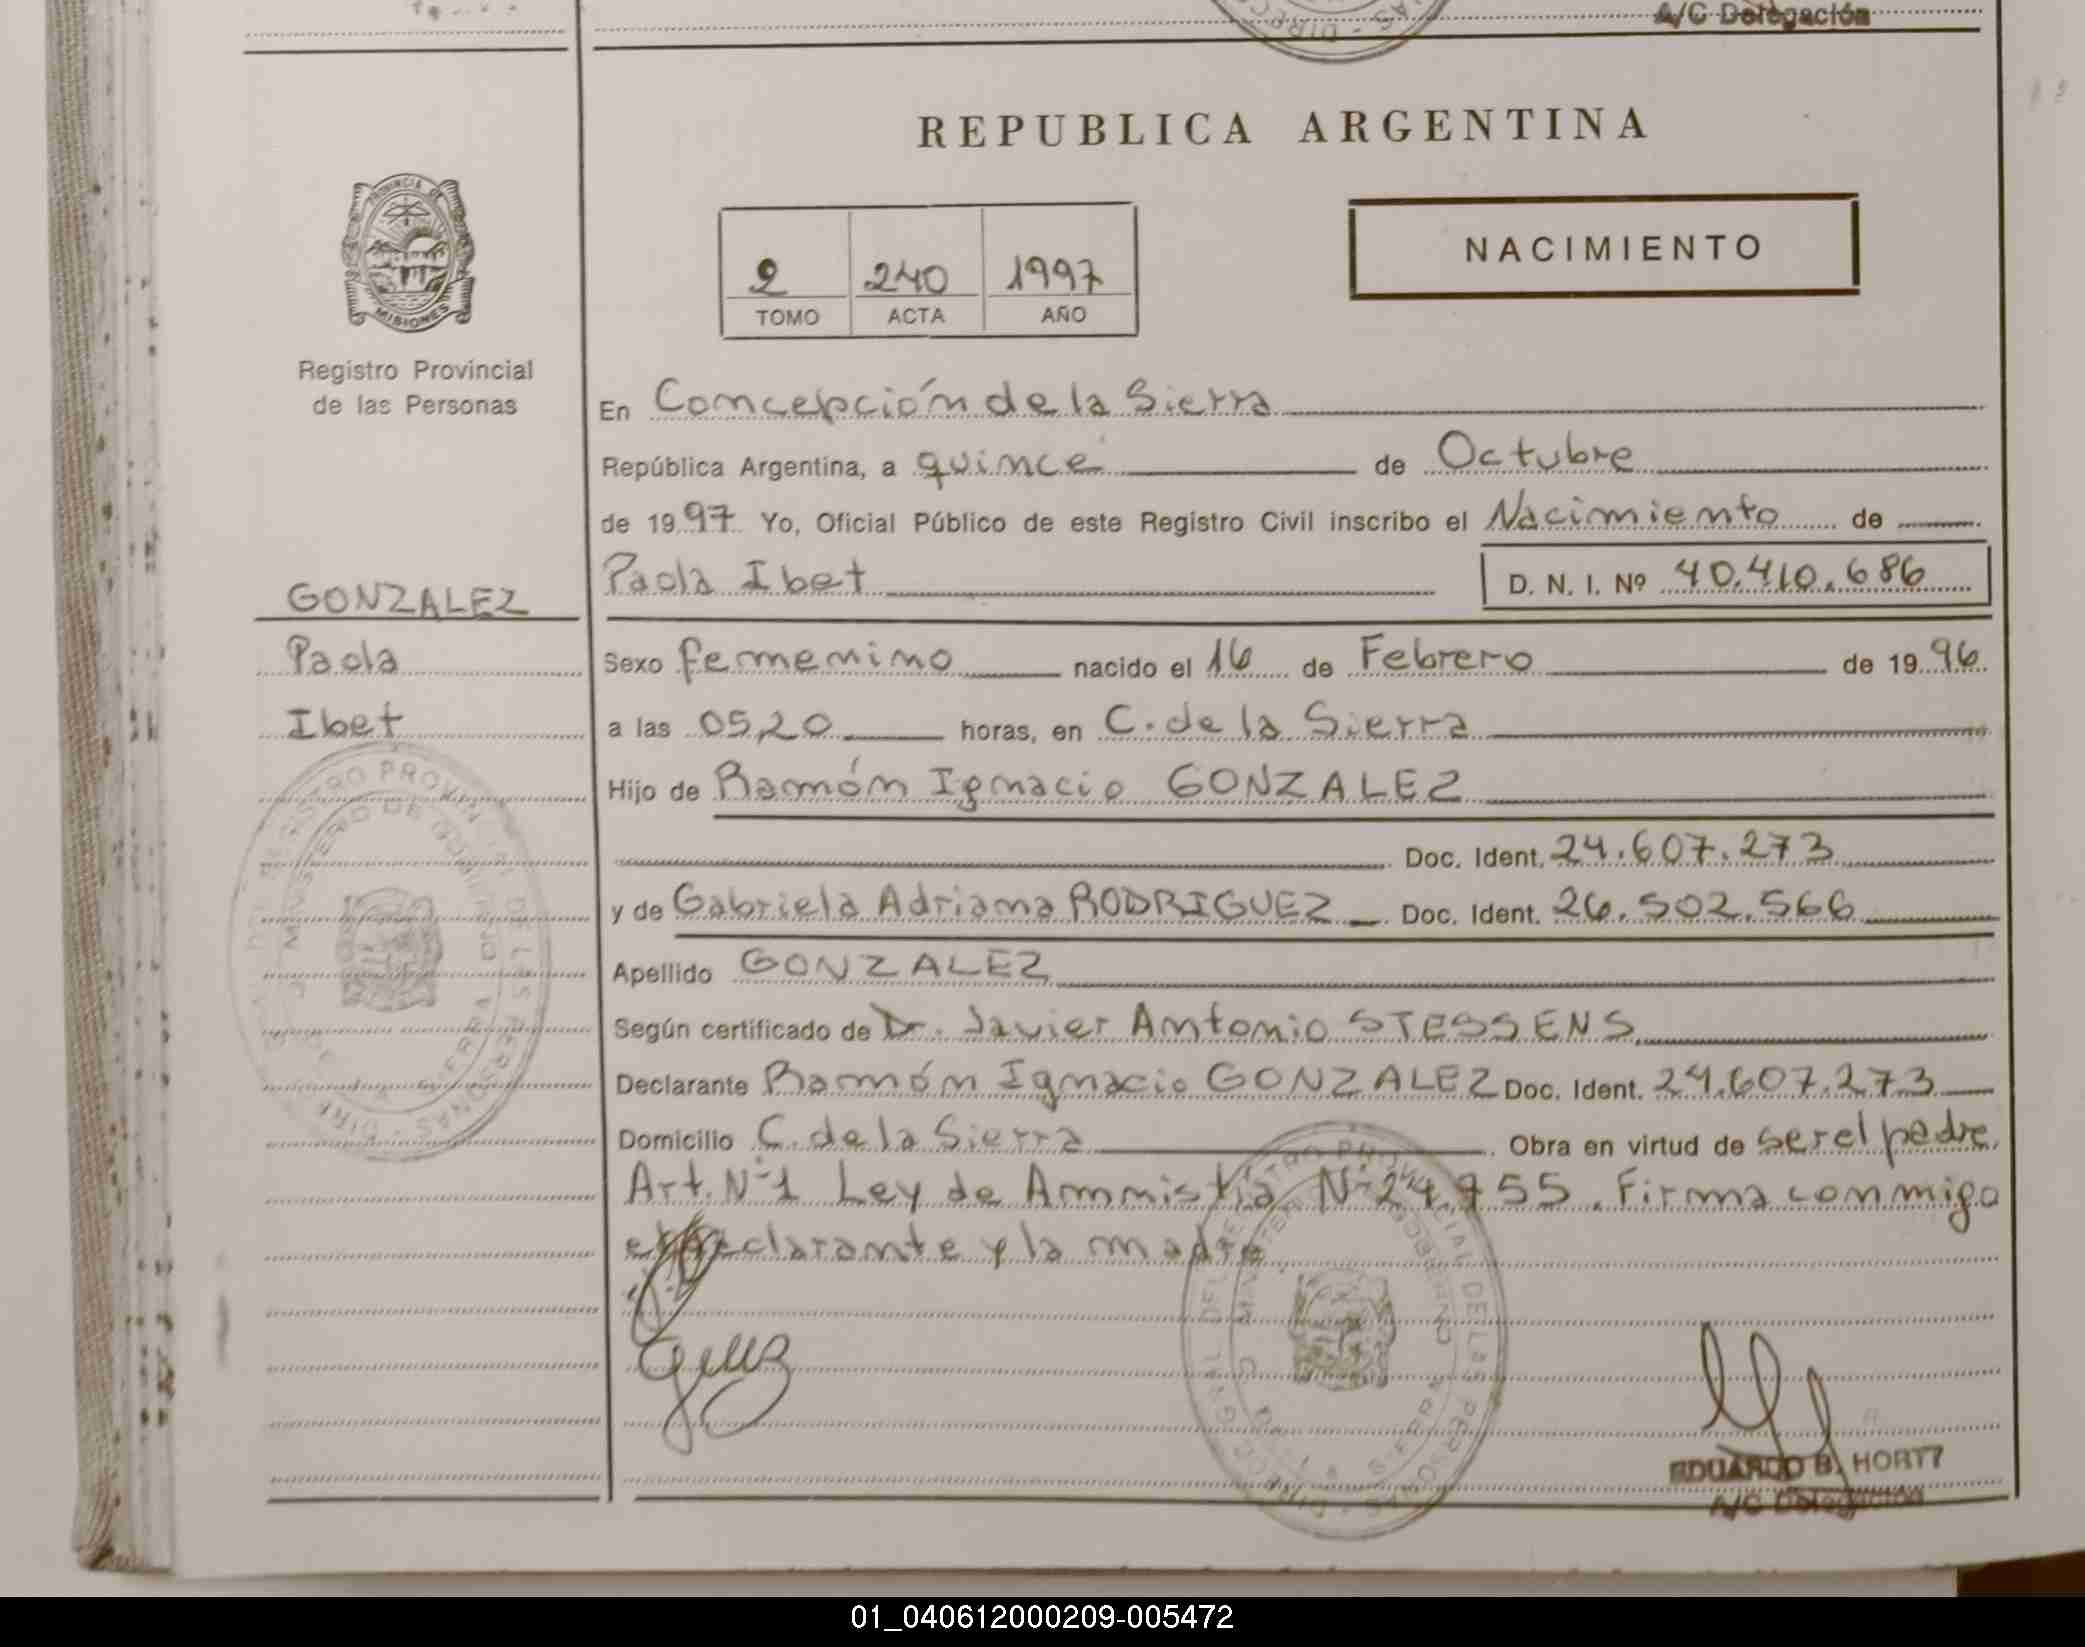 A/C Delegación
REPUBLICA ARGENTINA
PROVINCIA DE
MISIONES
Registro Provincial
de las Personas
2 240 1997
TOMO ACTA AÑO
NACIMIENTO
En Concepción de la Sierra
República Argentina, a quince de Octubre
de 1997 Yo, Oficial Público de este Registro Civil inscribo el Nacimiento de
Paola Ibet D. N. I. Nº 40.410.686
GONZALEZ
Paola
Ibet
Sexo femenino nacido el 16 de Febrero de 1996
a las 05,20 horas, en C. de la Sierra
Hijo de Ramón Ignacio GONZALEZ
Doc. Ident. 24.607.273
y de Gabriela Adriana RODRIGUEZ Doc. Ident. 26.502.566
Apellido GONZALEZ
Según certificado de Dr. Javier Antonio STESSENS
Declarante Ramón Ignacio GONZALEZ Doc. Ident. 24.607.273
Domicilio C. de la Sierra Obra en virtud de ser el padre.
Art. Nº 1 Ley de Amnistía Nº 24.755. Firma conmigo
el declarante y la madre
EDUARDO B. HORTT
A/C Delegación
01_040612000209-005472